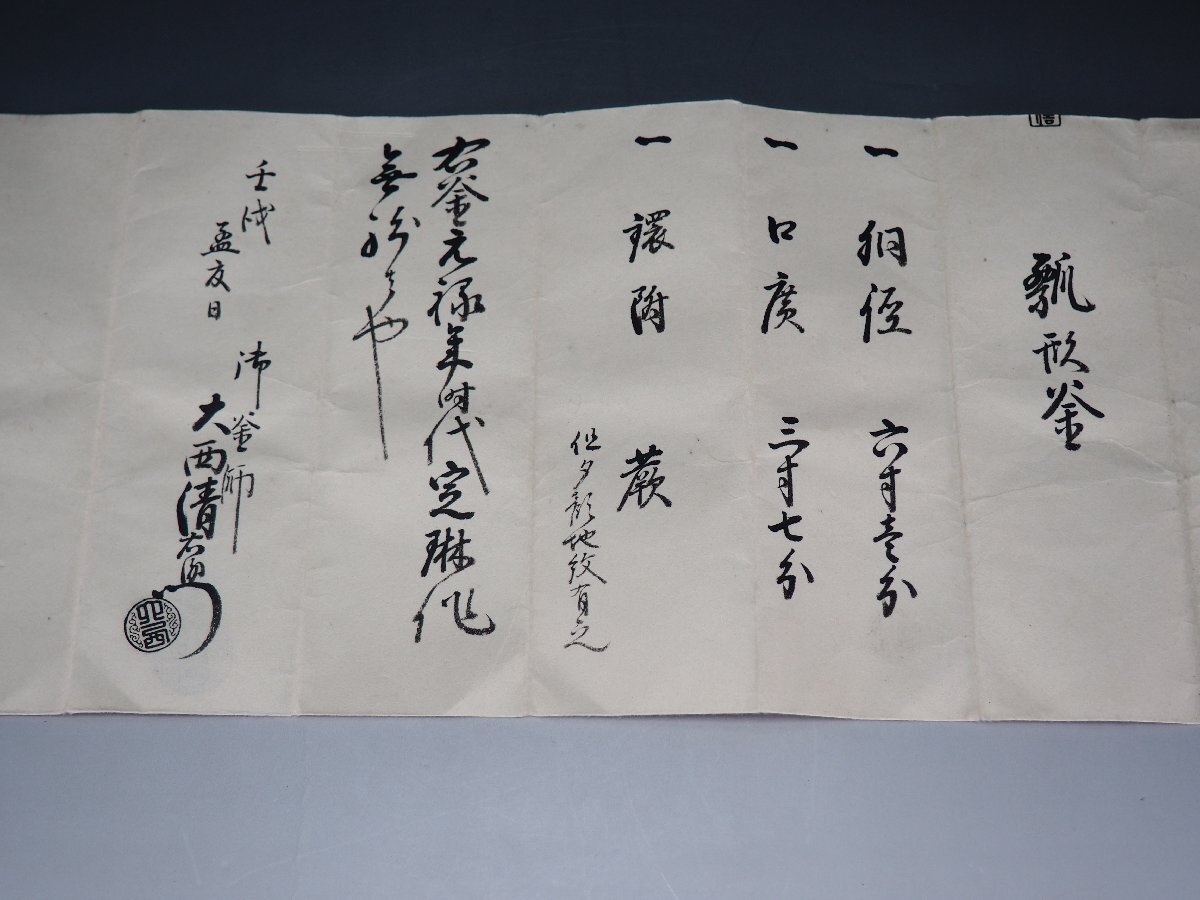 瓢形釜
一 胴径 六寸壱分
一 口広 三寸七分
一 環附 蕨
但夕顔地紋有之
右釜元禄年時代定琳作
無紛者也
壬戌
孟夏日
御釜師
大西清右衛門
大西